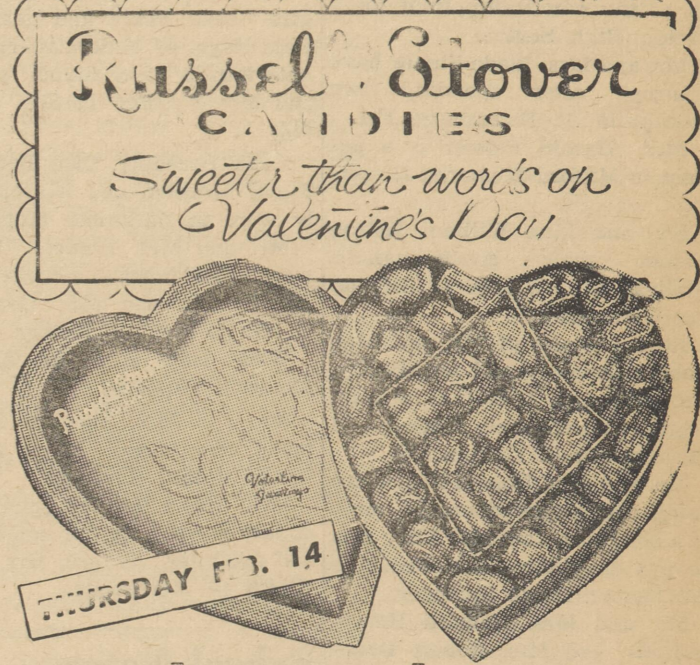 Russell Stover
CANDIES
Sweeter than words on
Valentine's Day
Russell Stover
Valentine
Greetings
THURSDAY FEB. 14